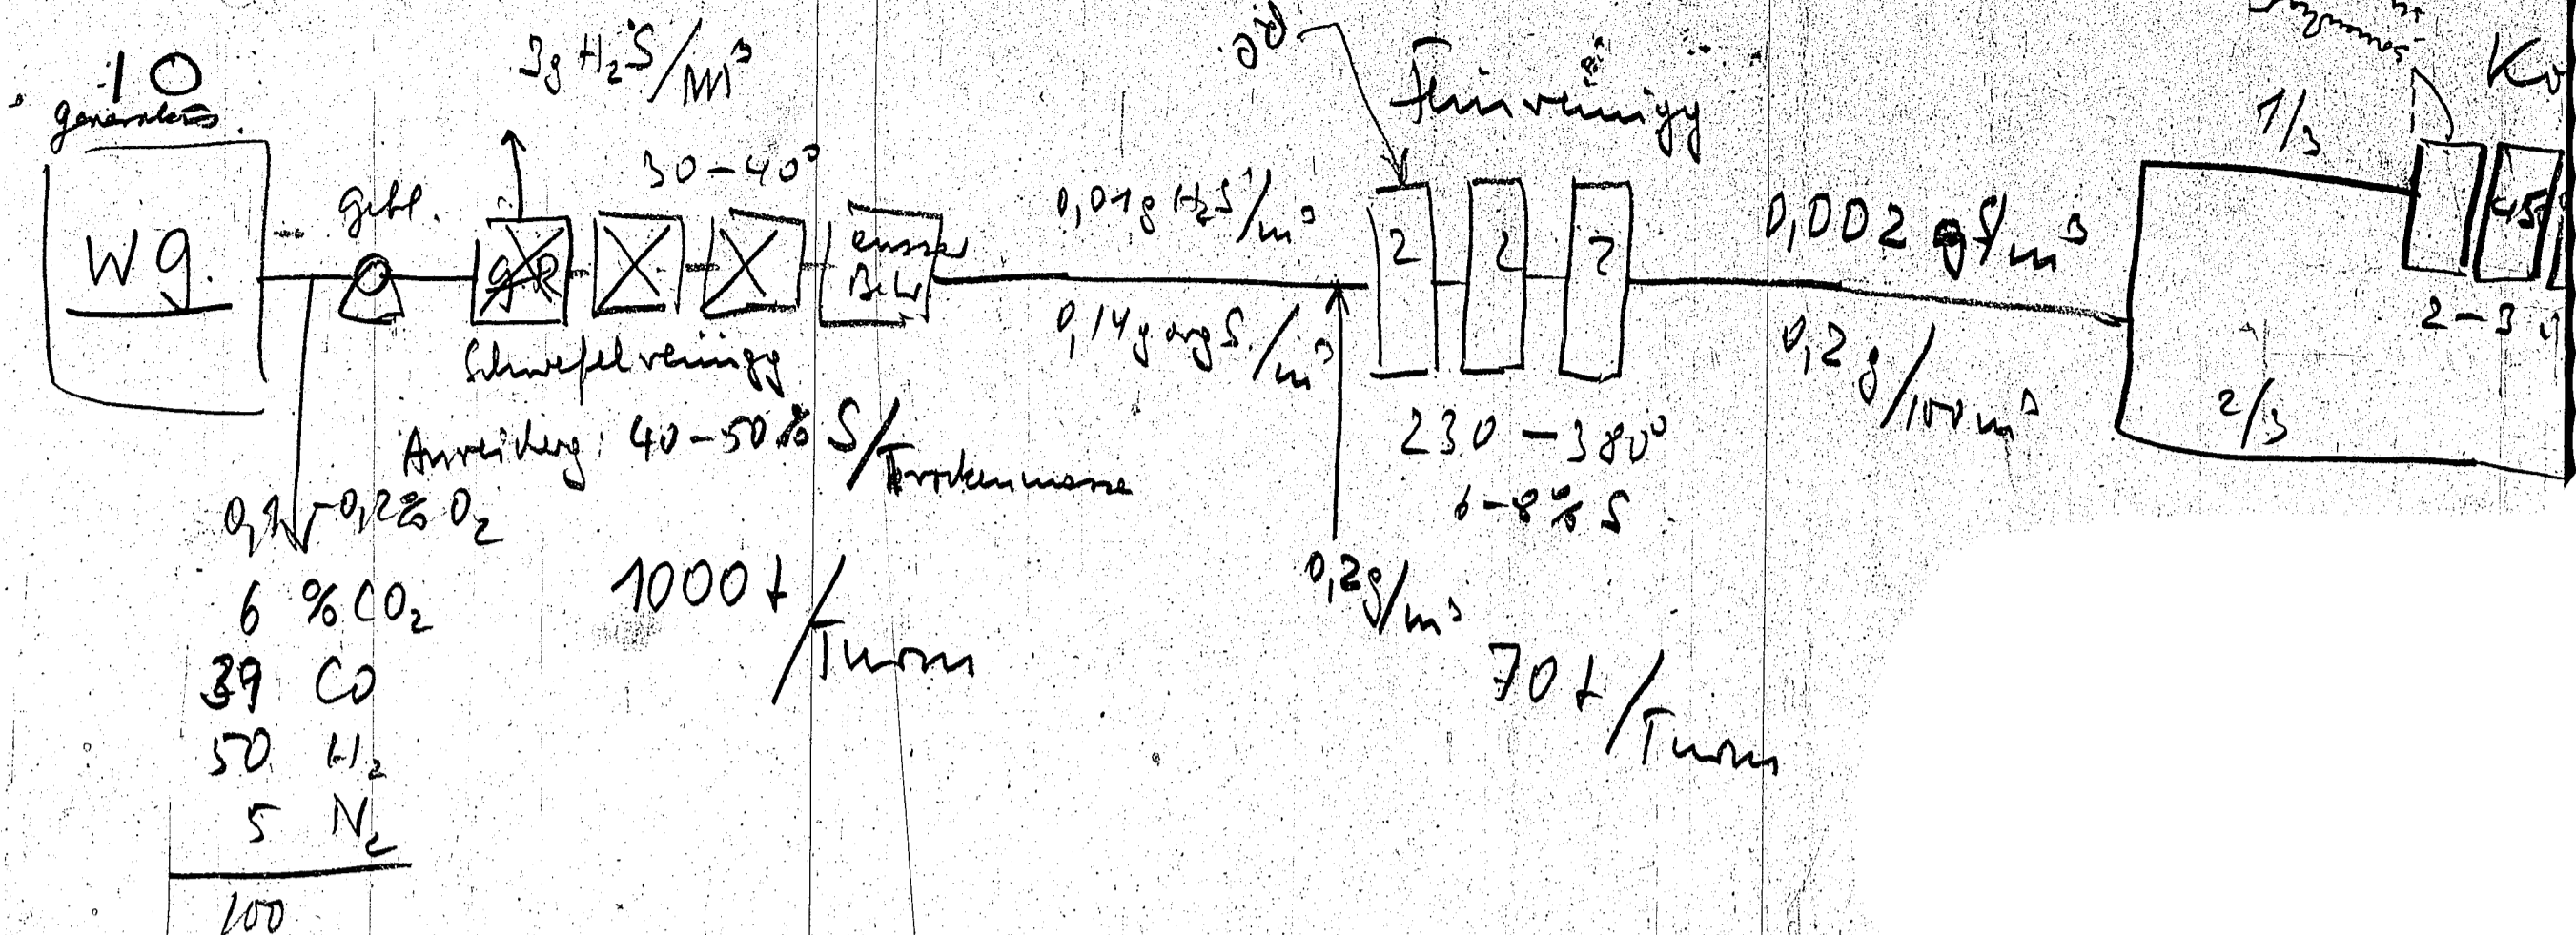 10
Generators
3g H₂S/m³
30-40°
Gebl.
W g.
gR
Schwefelreinigg
Anreicherg: 40-50% S/Trockenmasse
1000 t/Turm
0,1-0,2% O₂
6 % CO₂
39 CO
50 H₂
5 N₂
100
0,01g H₂S/m³
0,14g org S./m³
Feinreinigg
2 2 2
230-380°
6-8% S
0,2g/m³
70 t/Turm
0,002 g S/m³
0,2 g/100 m³
1/3
2/3
Ko
45
2-3